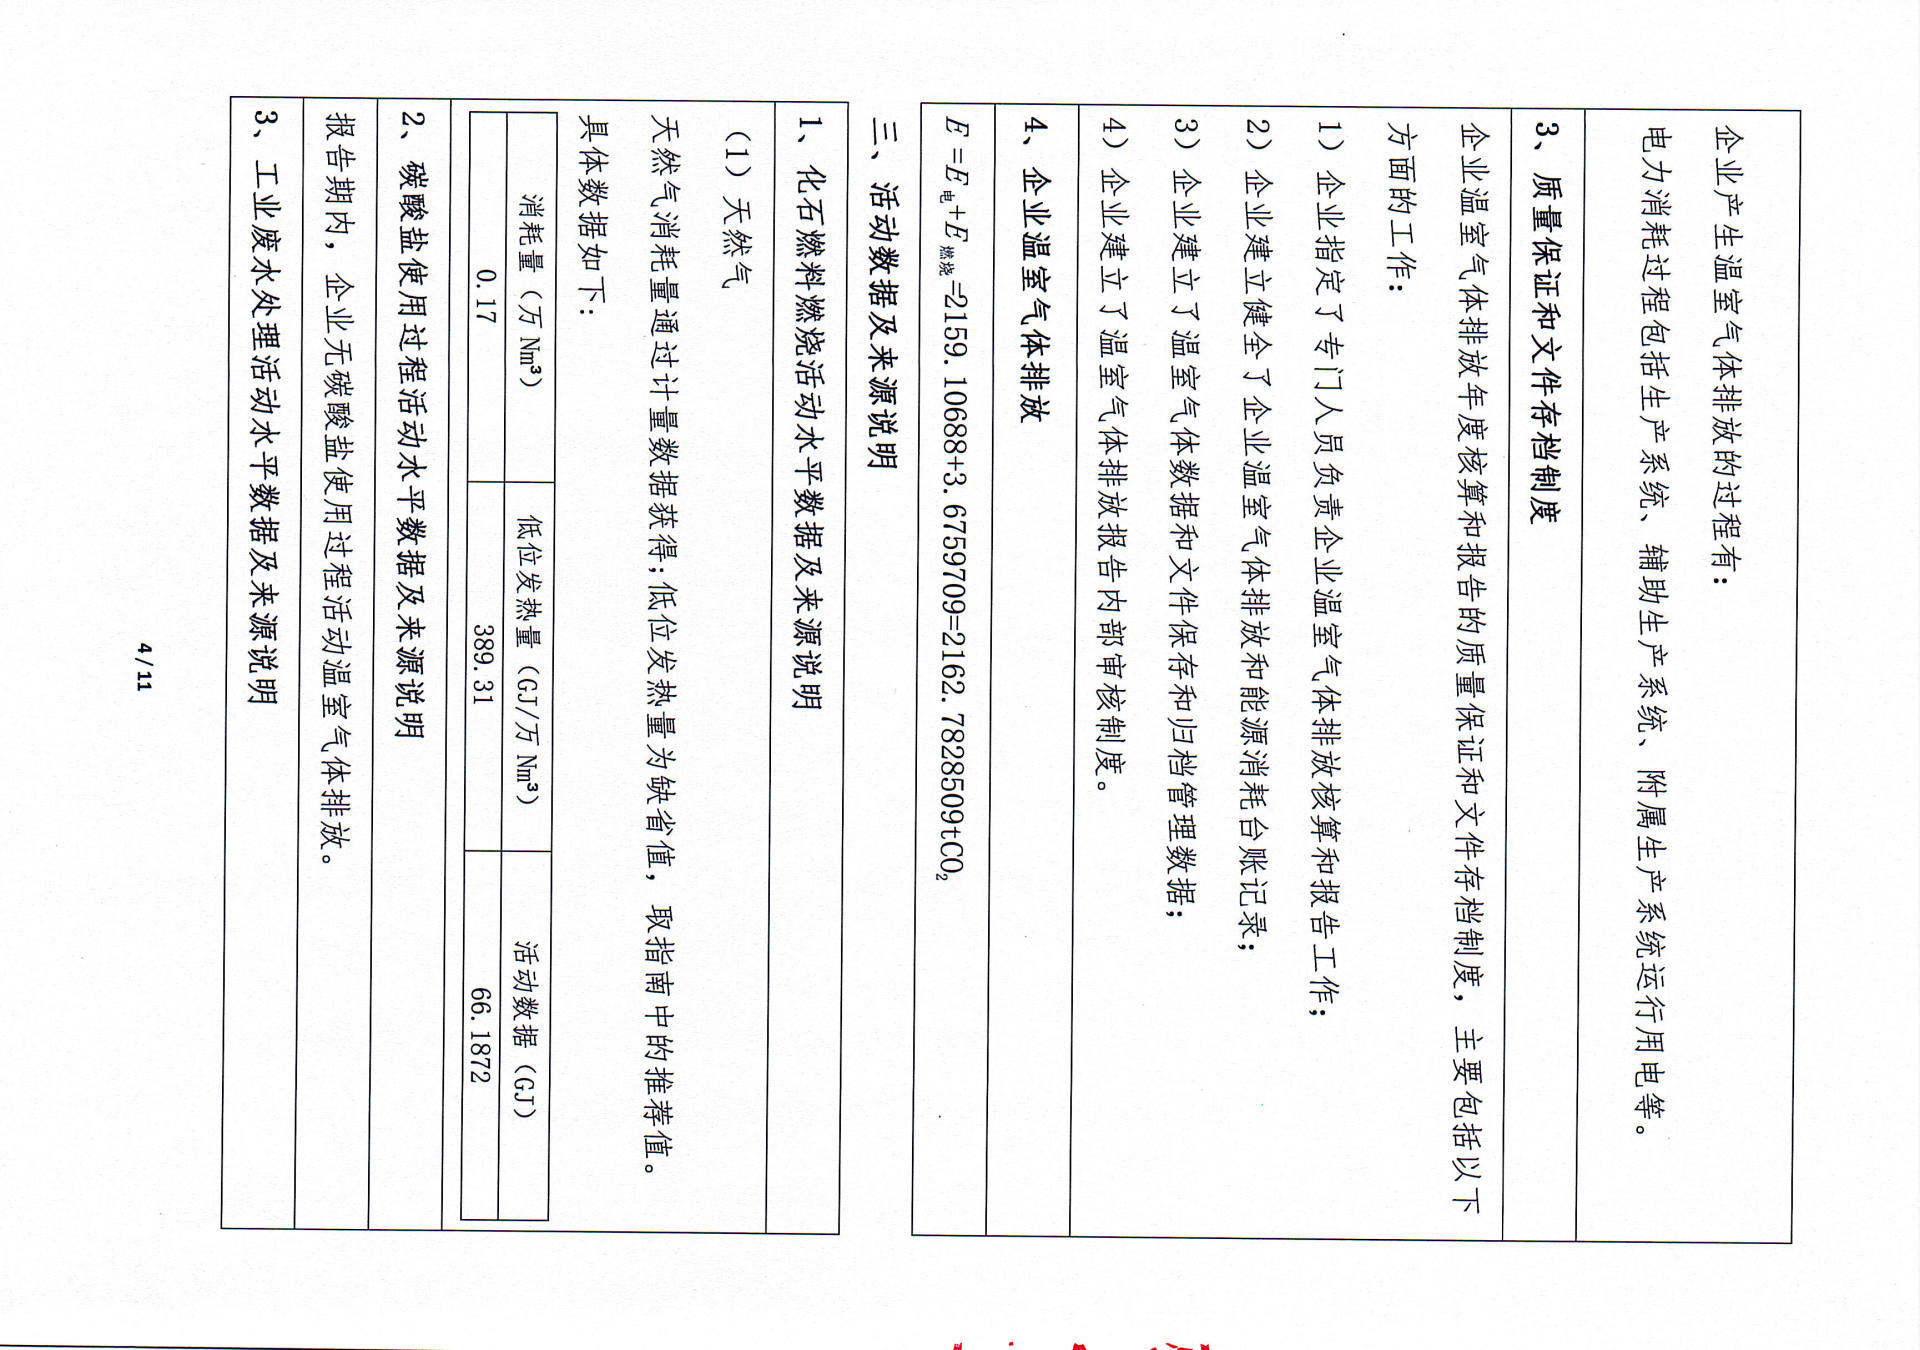 企业产生温室气体排放的过程有：
电力消耗过程包括生产系统、辅助生产系统、附属生产系统运行用电等。
3、质量保证和文件存档制度
企业温室气体排放年度核算和报告的质量保证和文件存档制度，主要包括以下
方面的工作：
1）企业指定了专门人员负责企业温室气体排放核算和报告工作；
2）企业建立健全了企业温室气体排放和能源消耗台账记录；
3）企业建立了温室气体数据和文件保存和归档管理数据；
4）企业建立了温室气体排放报告内部审核制度。
4、企业温室气体排放
E=E电+E燃烧=2159.10688+3.6759709=2162.7828509tCO₂
三、活动数据及来源说明
1、化石燃料燃烧活动水平数据及来源说明
（1）天然气
天然气消耗量通过计量数据获得；低位发热量为缺省值，取指南中的推荐值。
具体数据如下：
消耗量（万Nm³） 低位发热量（GJ/万Nm³） 活动数据（GJ）
0.17 389.31 66.1872
2、碳酸盐使用过程活动水平数据及来源说明
报告期内，企业无碳酸盐使用过程活动温室气体排放。
3、工业废水处理活动水平数据及来源说明
4/11